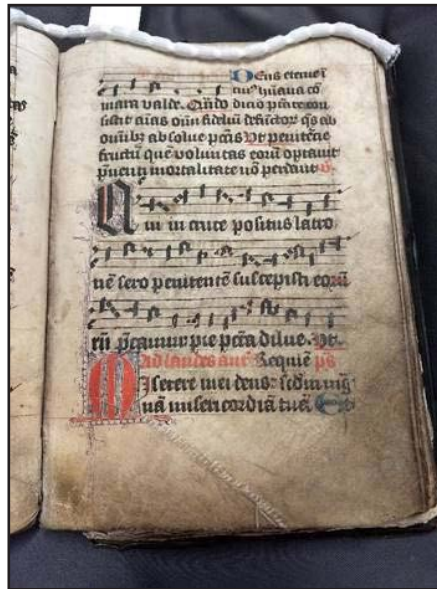 Deus eterne i
cui' huana co
mara valde. Qñdo dicio pctẽ con
ſiſtit aĩas om̃ fideliũ defũctor q̃s ab
om̃ibꝫ abſolue pctĩs Vt penitẽcie
fructũ quẽ voluntas eorũ optauit
p̃uentꝯ mortalitate nõ perdant v.
Qui in cruce poſitus latro
nẽ ſero penitentẽ ſuſcepiſti eorũ
p̃camur pie pctã dilue. Vt.
Ad laudes añ Requiẽ ps
Miſerere mei deus: ſcdm mag
nã miſericordiã tuã Et